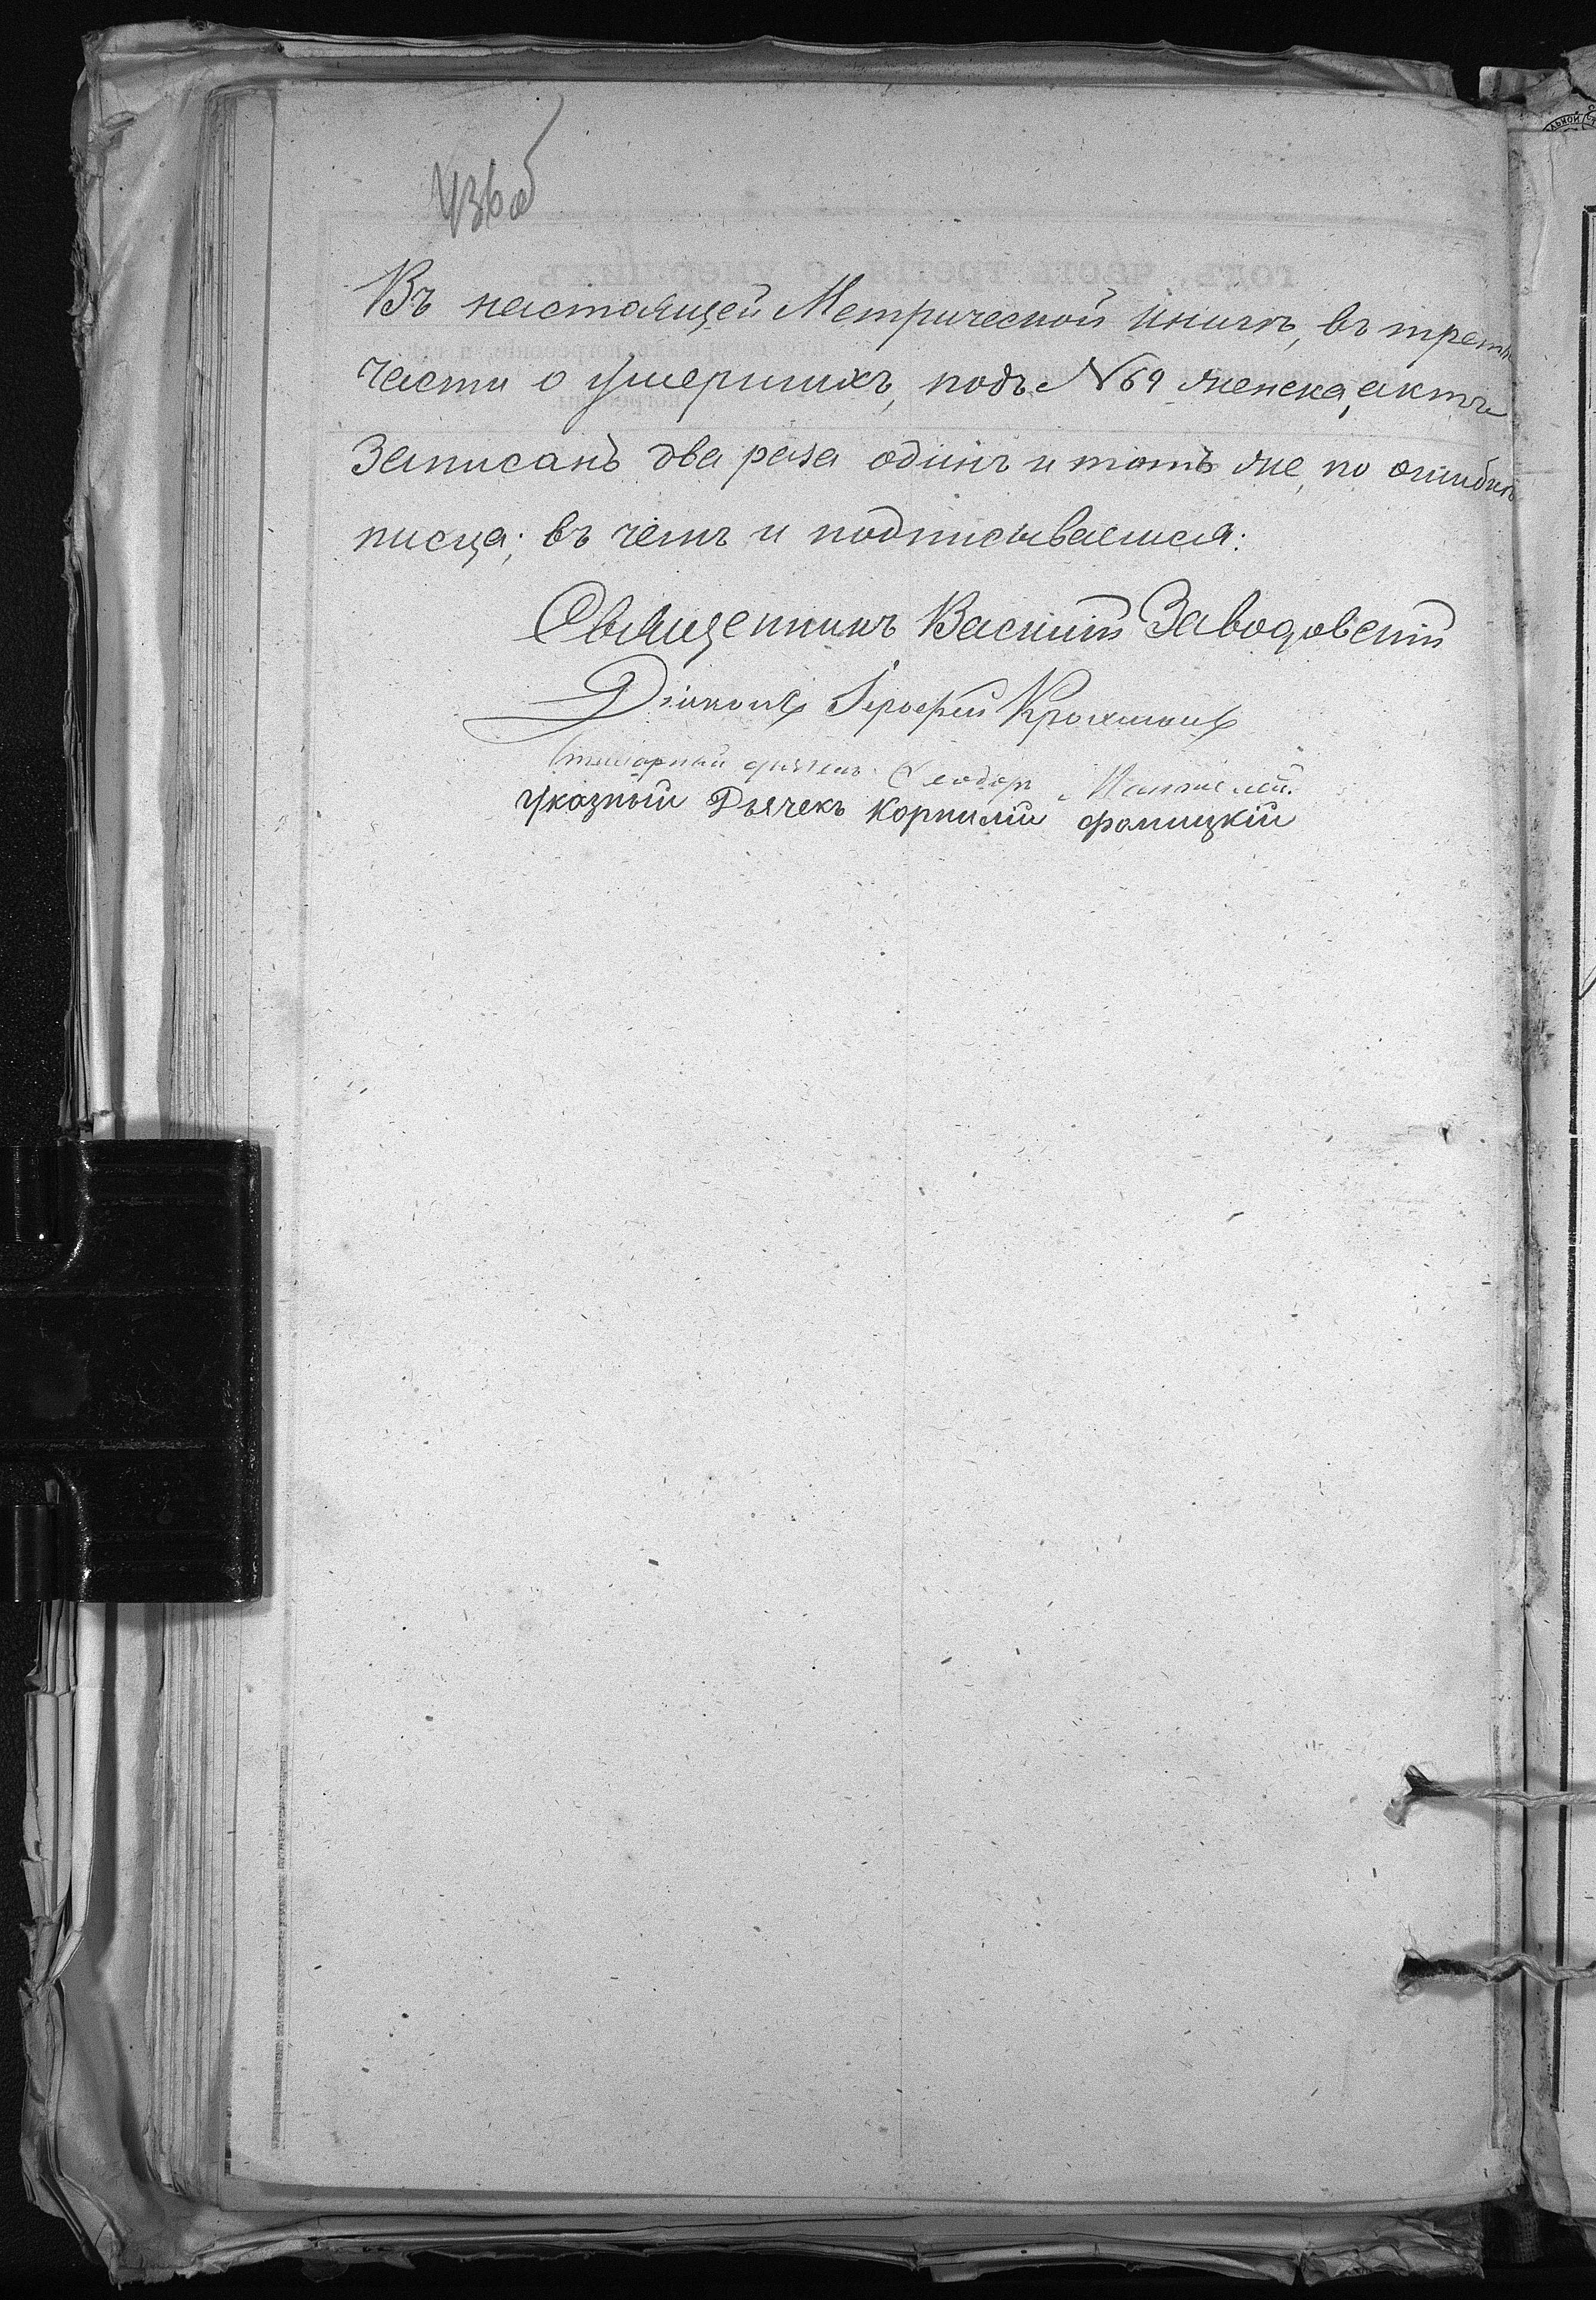 436об
Въ настоящей Метрической книгѣ, въ третьей
Части о умершихъ, подъ №69 женска, актъ
Записанъ два раза одинъ и тотъ же, по ошибкѣ
писца; въ чемъ и подписываемся:
Священникъ Василій Заводовскій
Діаконъ Іерофей
Штатный Ѳеодоръ
Указный Дьячекъ Корнилій Фомицкій
годъ, часть третія о умершихъ